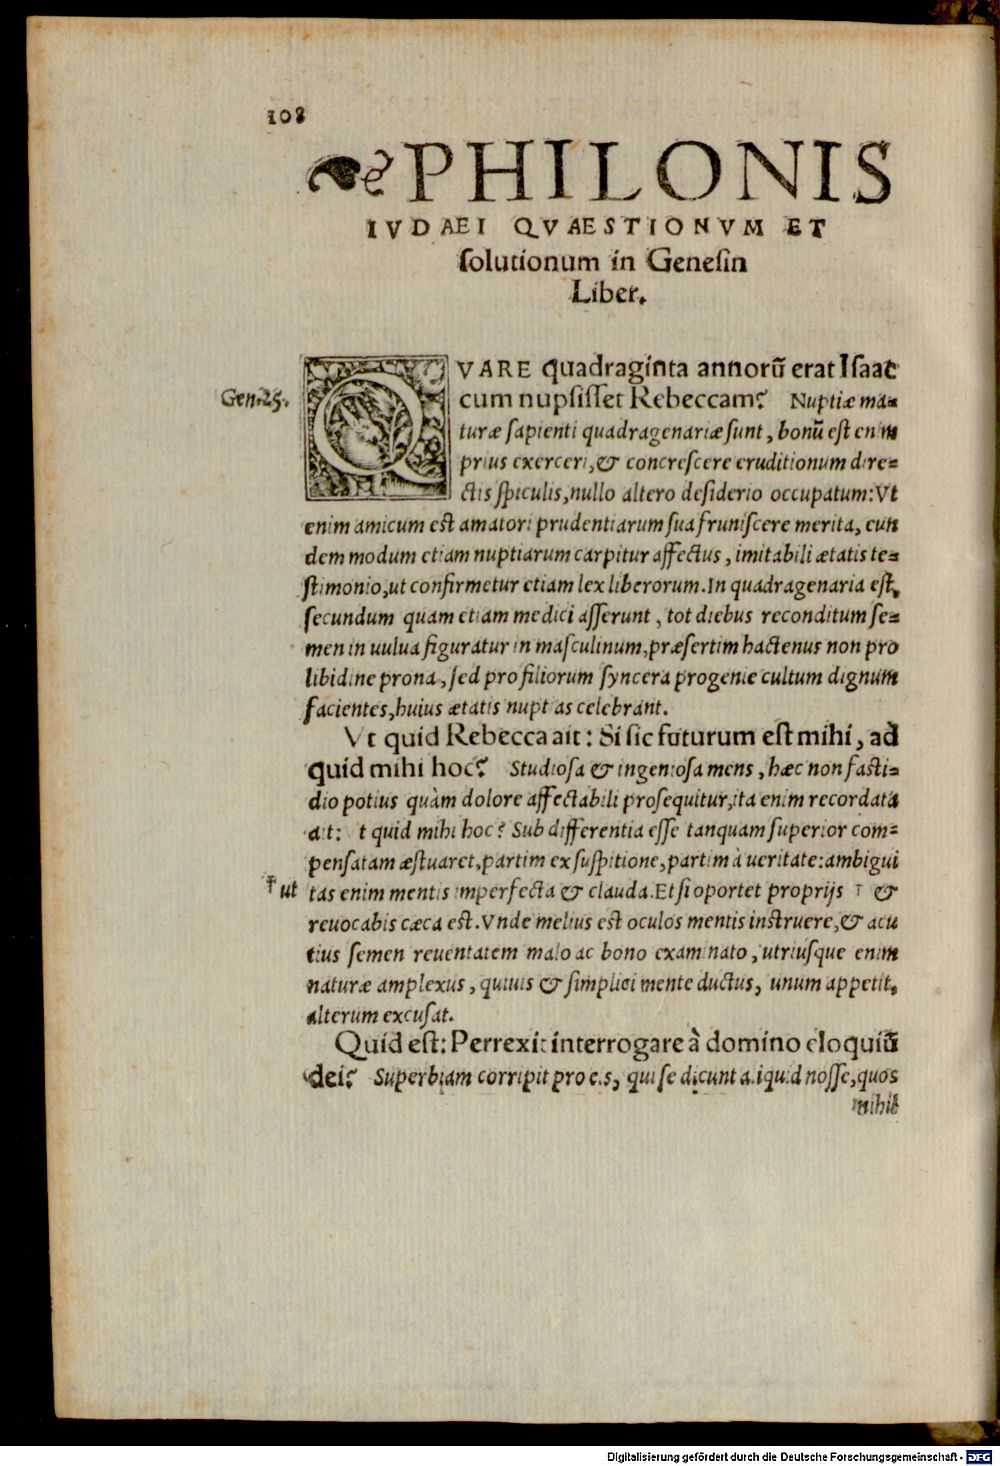 108
PHILONIS
IVDAEI QVAESTIONVM ET
ſolutionum in Geneſin
Liber.
Gen. 25.
QVARE quadraginta annorũ erat Iſaac
cum nupſiſſet Rebeccam? Nuptiæ ma-
turæ ſapienti quadragenariæ ſunt, bonũ eſt enim
prius exerceri, & concreſcere eruditionum dire-
ctis ſpiculis, nullo altero deſiderio occupatum: Vt
enim amicum eſt amatori prudentiarum ſua fruniſcere merita, eun
dem modum etiam nuptiarum carpitur affectus, imitabili ætatis te-
ſtimonio, ut confirmetur etiam lex liberorum. In quadragenaria eſt,
ſecundum quam etiam medici aſſerunt, tot diebus reconditum ſe-
men in uulua figuratur in maſculinum, præſertim hactenus non pro
libidine prona, ſed pro filiorum ſyncera progenie cultum dignum
facientes, huius ætatis nuptias celebrant.
Vt quid Rebecca ait: Si ſic futurum eſt mihi, ad
quid mihi hoc? Studioſa & ingenioſa mens, hæc non faſti-
dio potius quàm dolore affectabili proſequitur, ita enim recordata
ait: t quid mihi hoc? Sub differentia eſſe tanquam ſuperior com-
penſatam æſtuaret, partim ex ſuſpitione, partim à ueritate: ambigui
† ut tas enim mentis imperfecta & clauda. Et ſi oportet proprijs † &
reuocabis cæca eſt. Vnde melius eſt oculos mentis inſtruere, & acu
tius ſemen reuentatem malo ac bono examinato, utriuſque enim
naturæ amplexus, quiuis & ſimplici mente ductus, unum appetit,
alterum excuſat.
Quid eſt: Perrexit interrogare à domino eloquiũ
dei? Superbiam corripit pro eis, qui ſe dicunt aliquid noſſe, quos
nihil
Digitalisierung gefördert durch die Deutsche Forschungsgemeinschaft - DFG